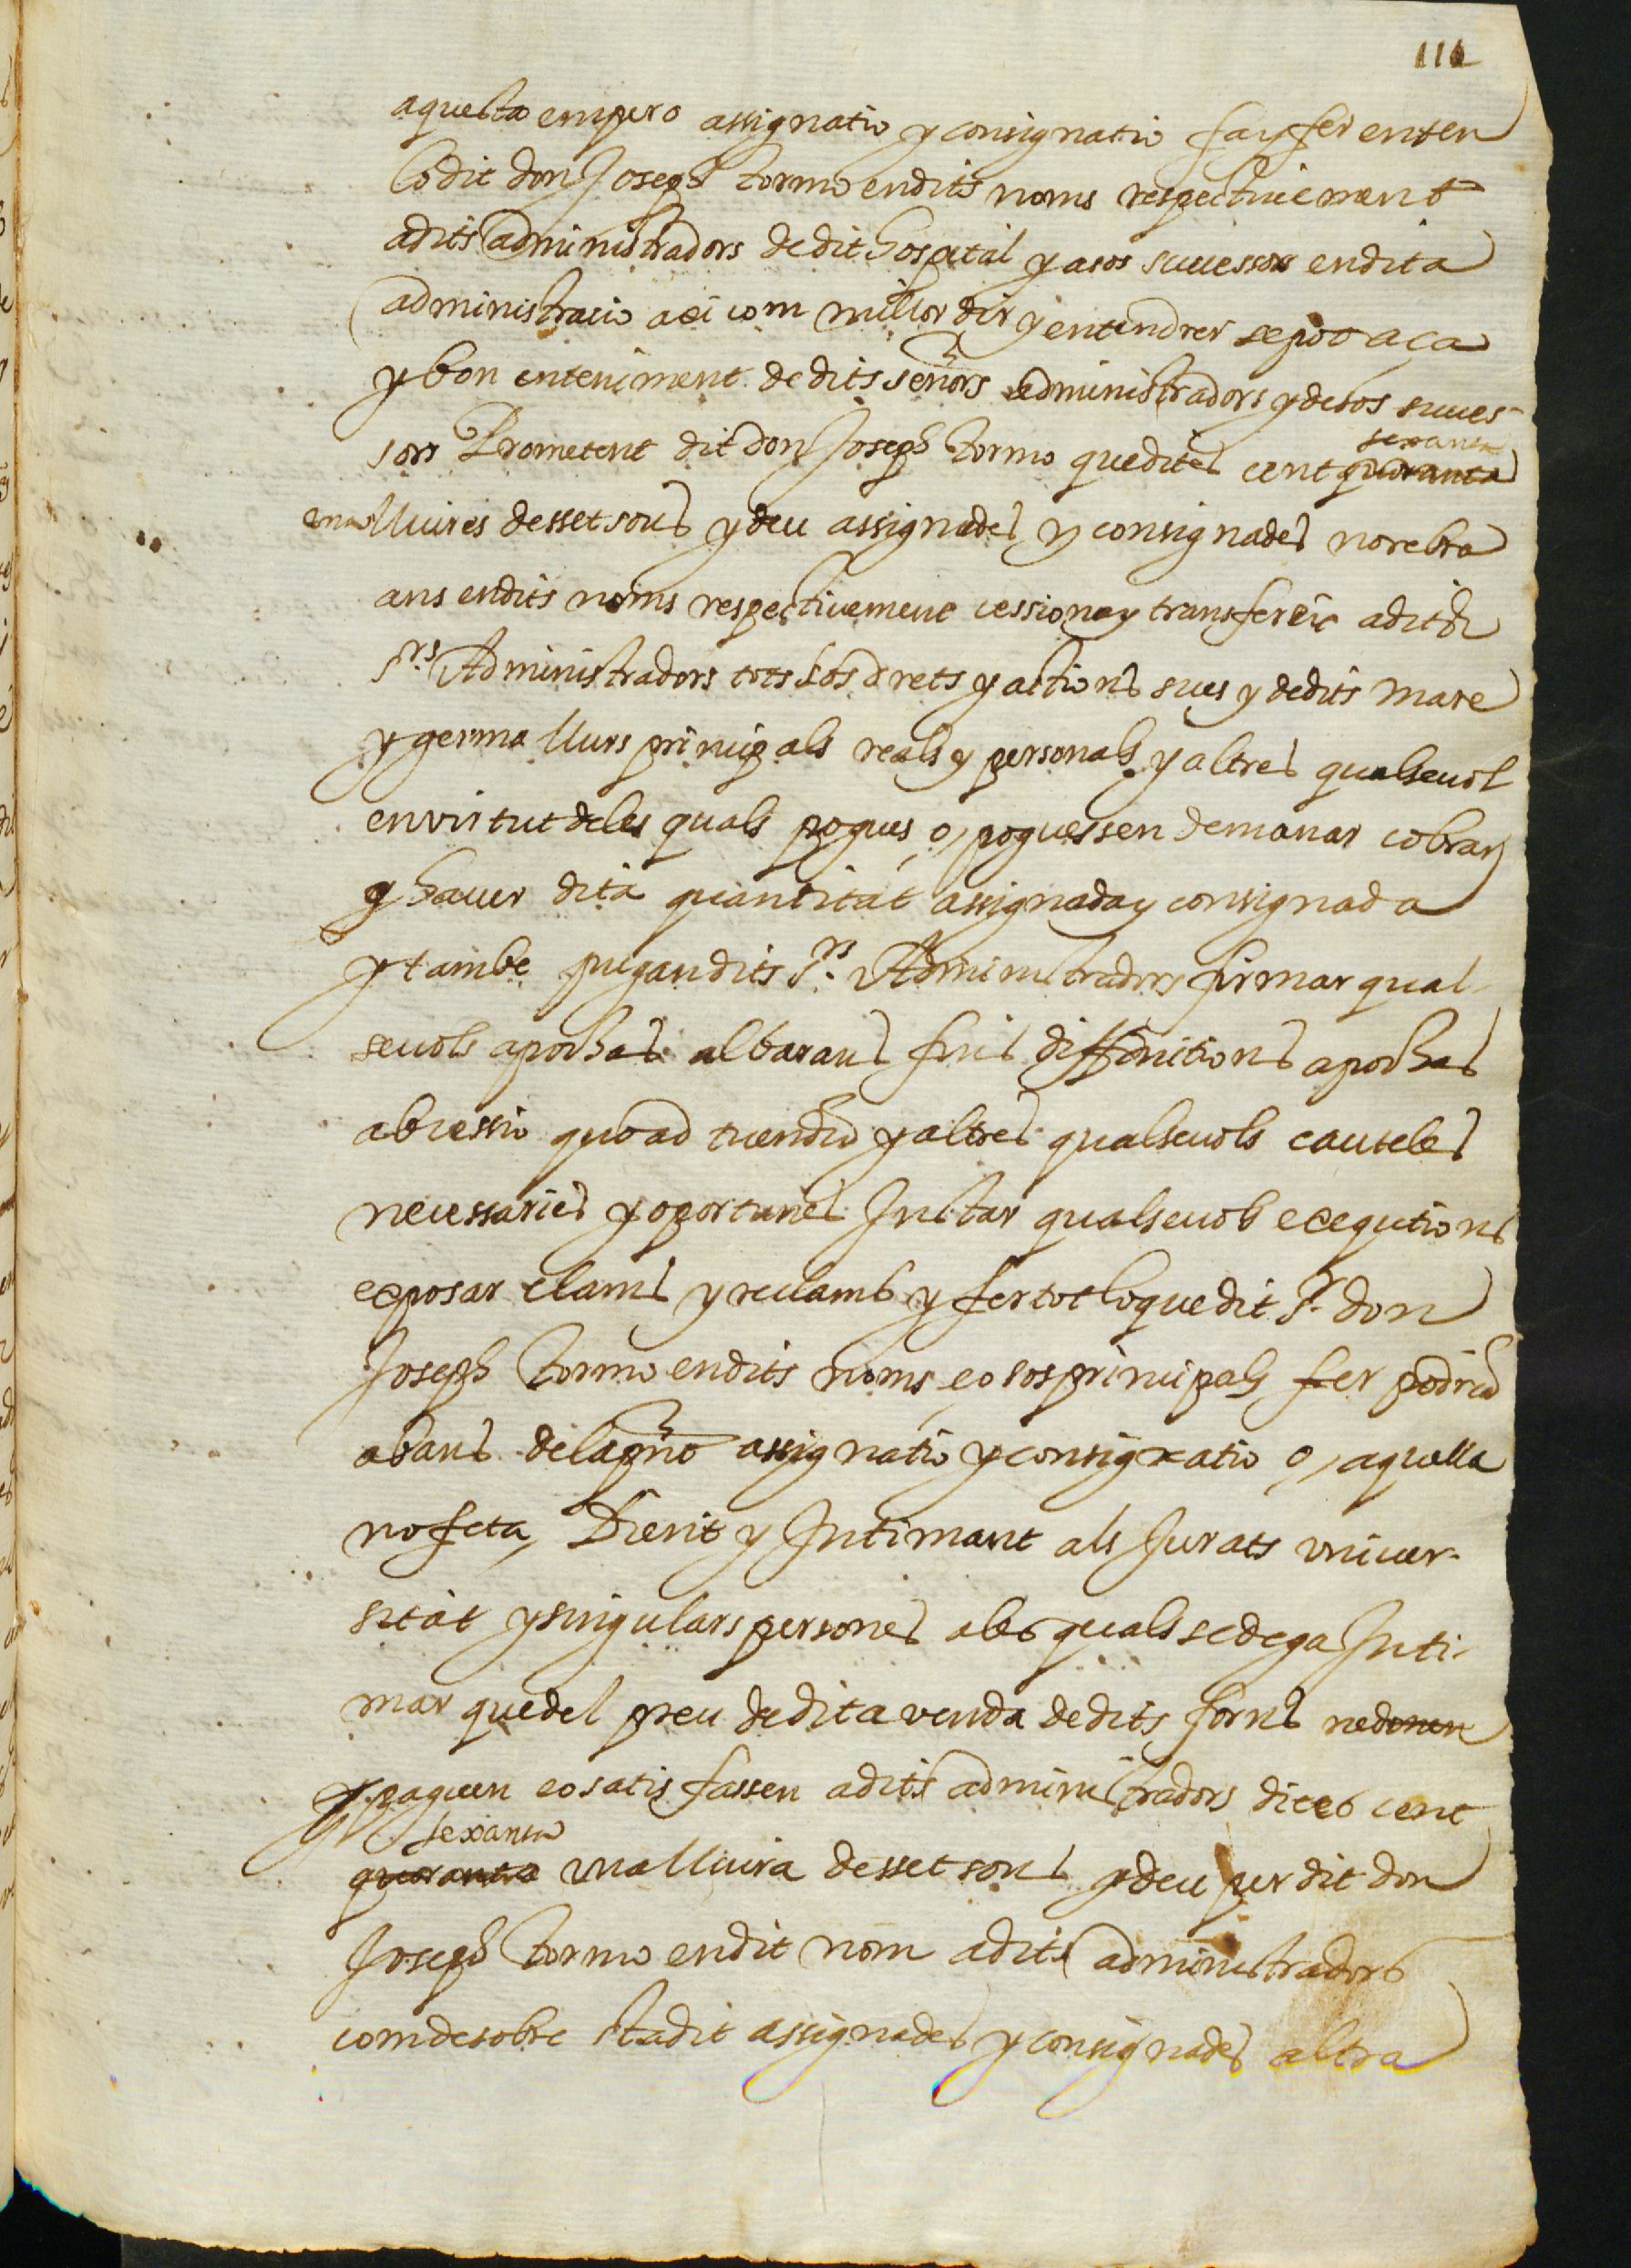 111
aquesta empero assignatio y consignatio fa y fer enten
lo dit don Joseph tormo en dits noms respectivement
a dits administradors de dit hospital y a sos successors en dita
administracio axi com millor dir y entendrer se pot a ça
y bon enteniment de dits señors administradors y de sos succes-
sors Prometent dit don Joseph tormo que dites cent quoranta
sexanta
una lliures desset sous y deu assignades y consignades no rebra
ans en dits noms respectivement cessiona y transfereix a dits
Srs Administradors tots los drets y actions sues y de dits mare
y germa llurs principals reals y personals y altres qualsevol
en virtut de les quals pogues o, poguessen demanar cobrar
y haver dita quantitat assignada y consignada
y tambe pugan dits Srs Administradors firmar qual-
sevols apochas albarans fins diffinitions apochas
ab cessio quo ad tuendum y altres qualsevols cauteles
necessaries y oportunes Instar qualsevols exequtions
exposar clams y reclams y fer tot lo que dit Sr don
Joseph tormo en dits noms, eo sos principals fer podrian
abans de la pnt assignatio y consignatio o, aquella
no feta, Dient y Intimant als Jurats univer-
sitat y singulars persones als quals se dega Inti-
mar que del preu de dita venda de dits forns ne donen
y paguen eo satisfassen a dits administradors dites cent
sexanta
quoranta una lliura desset sous y deu per dit don
Joseph tormo en dit nom a dits administradors
com de sobre sta dit assignades y consignades altra